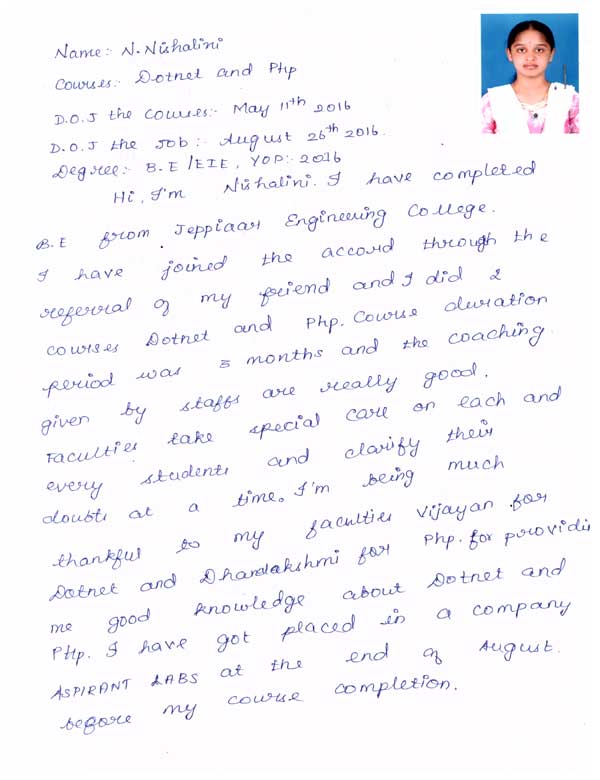 Name:- N. Nishalini
Courses:- Dotnet and Php
D.O.J the Courses:- May 11th 2016
D.O.J the Job:- August 26th 2016.
Degree:- B.E/EIE, YOP:- 2016
Hi, I'm Nishalini. I have completed
B.E from Jeppiaar Engineering College.
I have joined the accord through the
referral of my friend and I did 2
courses Dotnet and Php. Course duration
period was 3 months and the coaching
given by staffs are really good.
Faculties take special care on each and
every students and clarify their
doubts at a time. I'm being much
thankful to my faculties Vijayan for
Dotnet and Dhanalakshmi for Php. for providi
me good knowledge about Dotnet and
PHp. I have got placed in a company
ASPIRANT LABS at the end of August.
before my course completion.